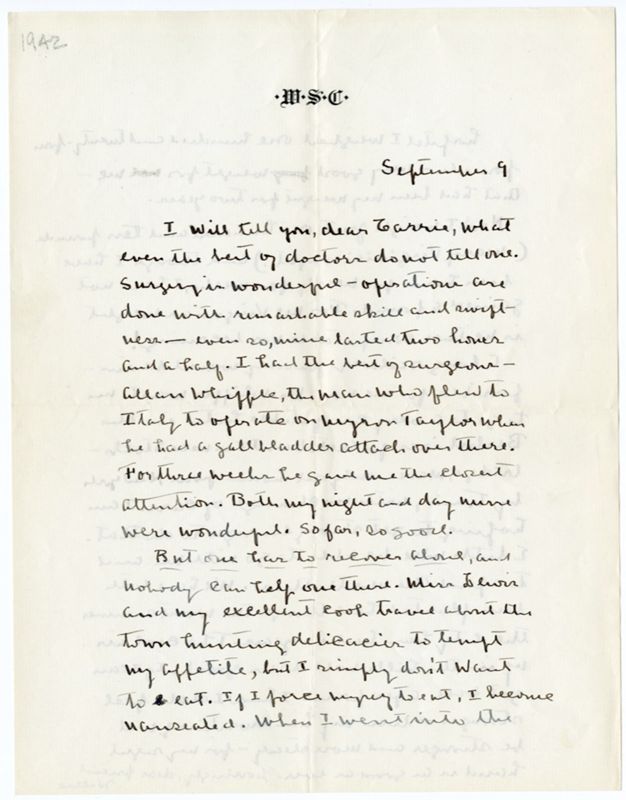 1942
·W·S·C·
September 9
I will tell you, dear Carrie, what
even the best of doctors do not tell one.
Surgery is wonderful – operations are
done with remarkable skill and swift-
ness – even so, mine lasted two hours
and a half. I had the best of surgeons –
Allan Whipple, the man who flew to
Italy to operate on Myron Taylor when
he had a gall bladder attack over there.
For three weeks he gave me the closest
attention. Both my night and day nurse
were wonderful. So far, so good.
But one has to recover alone, and
nobody can help one there. Miss Lewis
and my excellent cook travel about the
town hunting delicacies to tempt
my appetite, but I simply don't want
to eat. If I force myself to eat, I become
nauseated. When I went into the